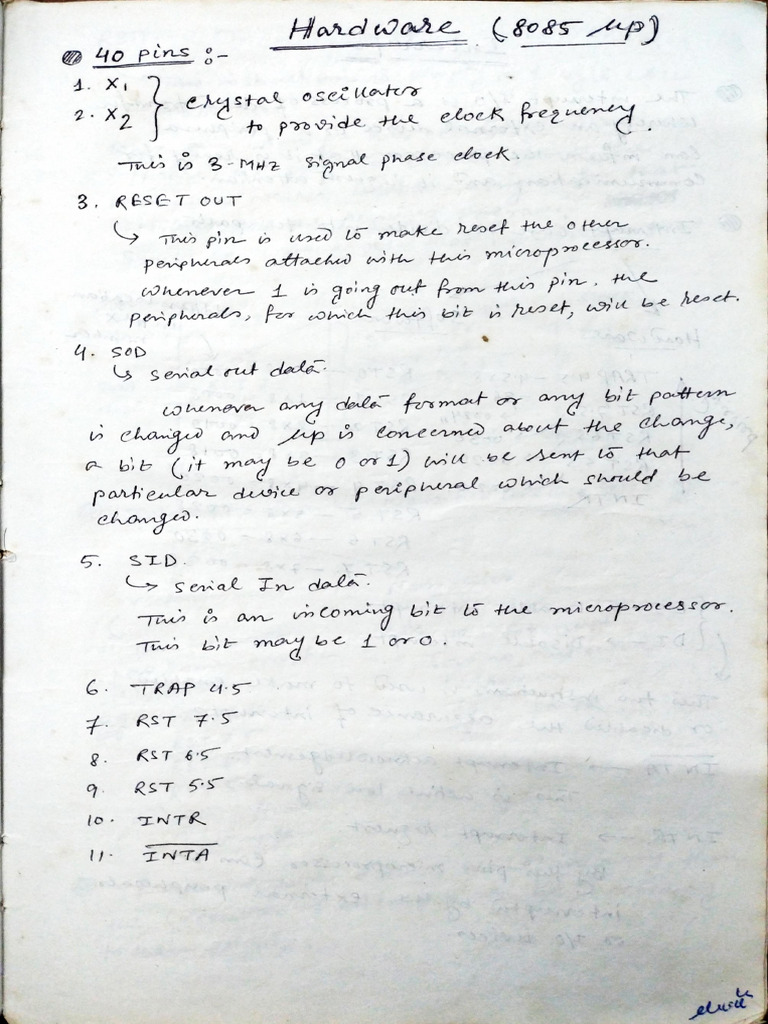 Hardware (8085 μp)
40 pins :-
1. X1
2. X2
crystal oscillator
to provide the clock frequency.
This is 3-MHz signal phase clock
3. RESET OUT
↳ This pin is used to make reset the other
peripherals attached with this microprocessor.
whenever 1 is going out from this pin, the
peripherals, for which this bit is reset, will be reset.
4. SOD
↳ serial out data.
whenever any data format or any bit pattern
is changed and μp is concerned about the change,
a bit (it may be 0 or 1) will be sent to that
particular device or peripheral which should be
changed.
5. SID.
↳ serial In data.
This is an incoming bit to the microprocessor.
This bit may be 1 or 0.
6. TRAP 4.5
7. RST 7.5
8. RST 6.5
9. RST 5.5
10. INTR
11. I̅N̅T̅A̅